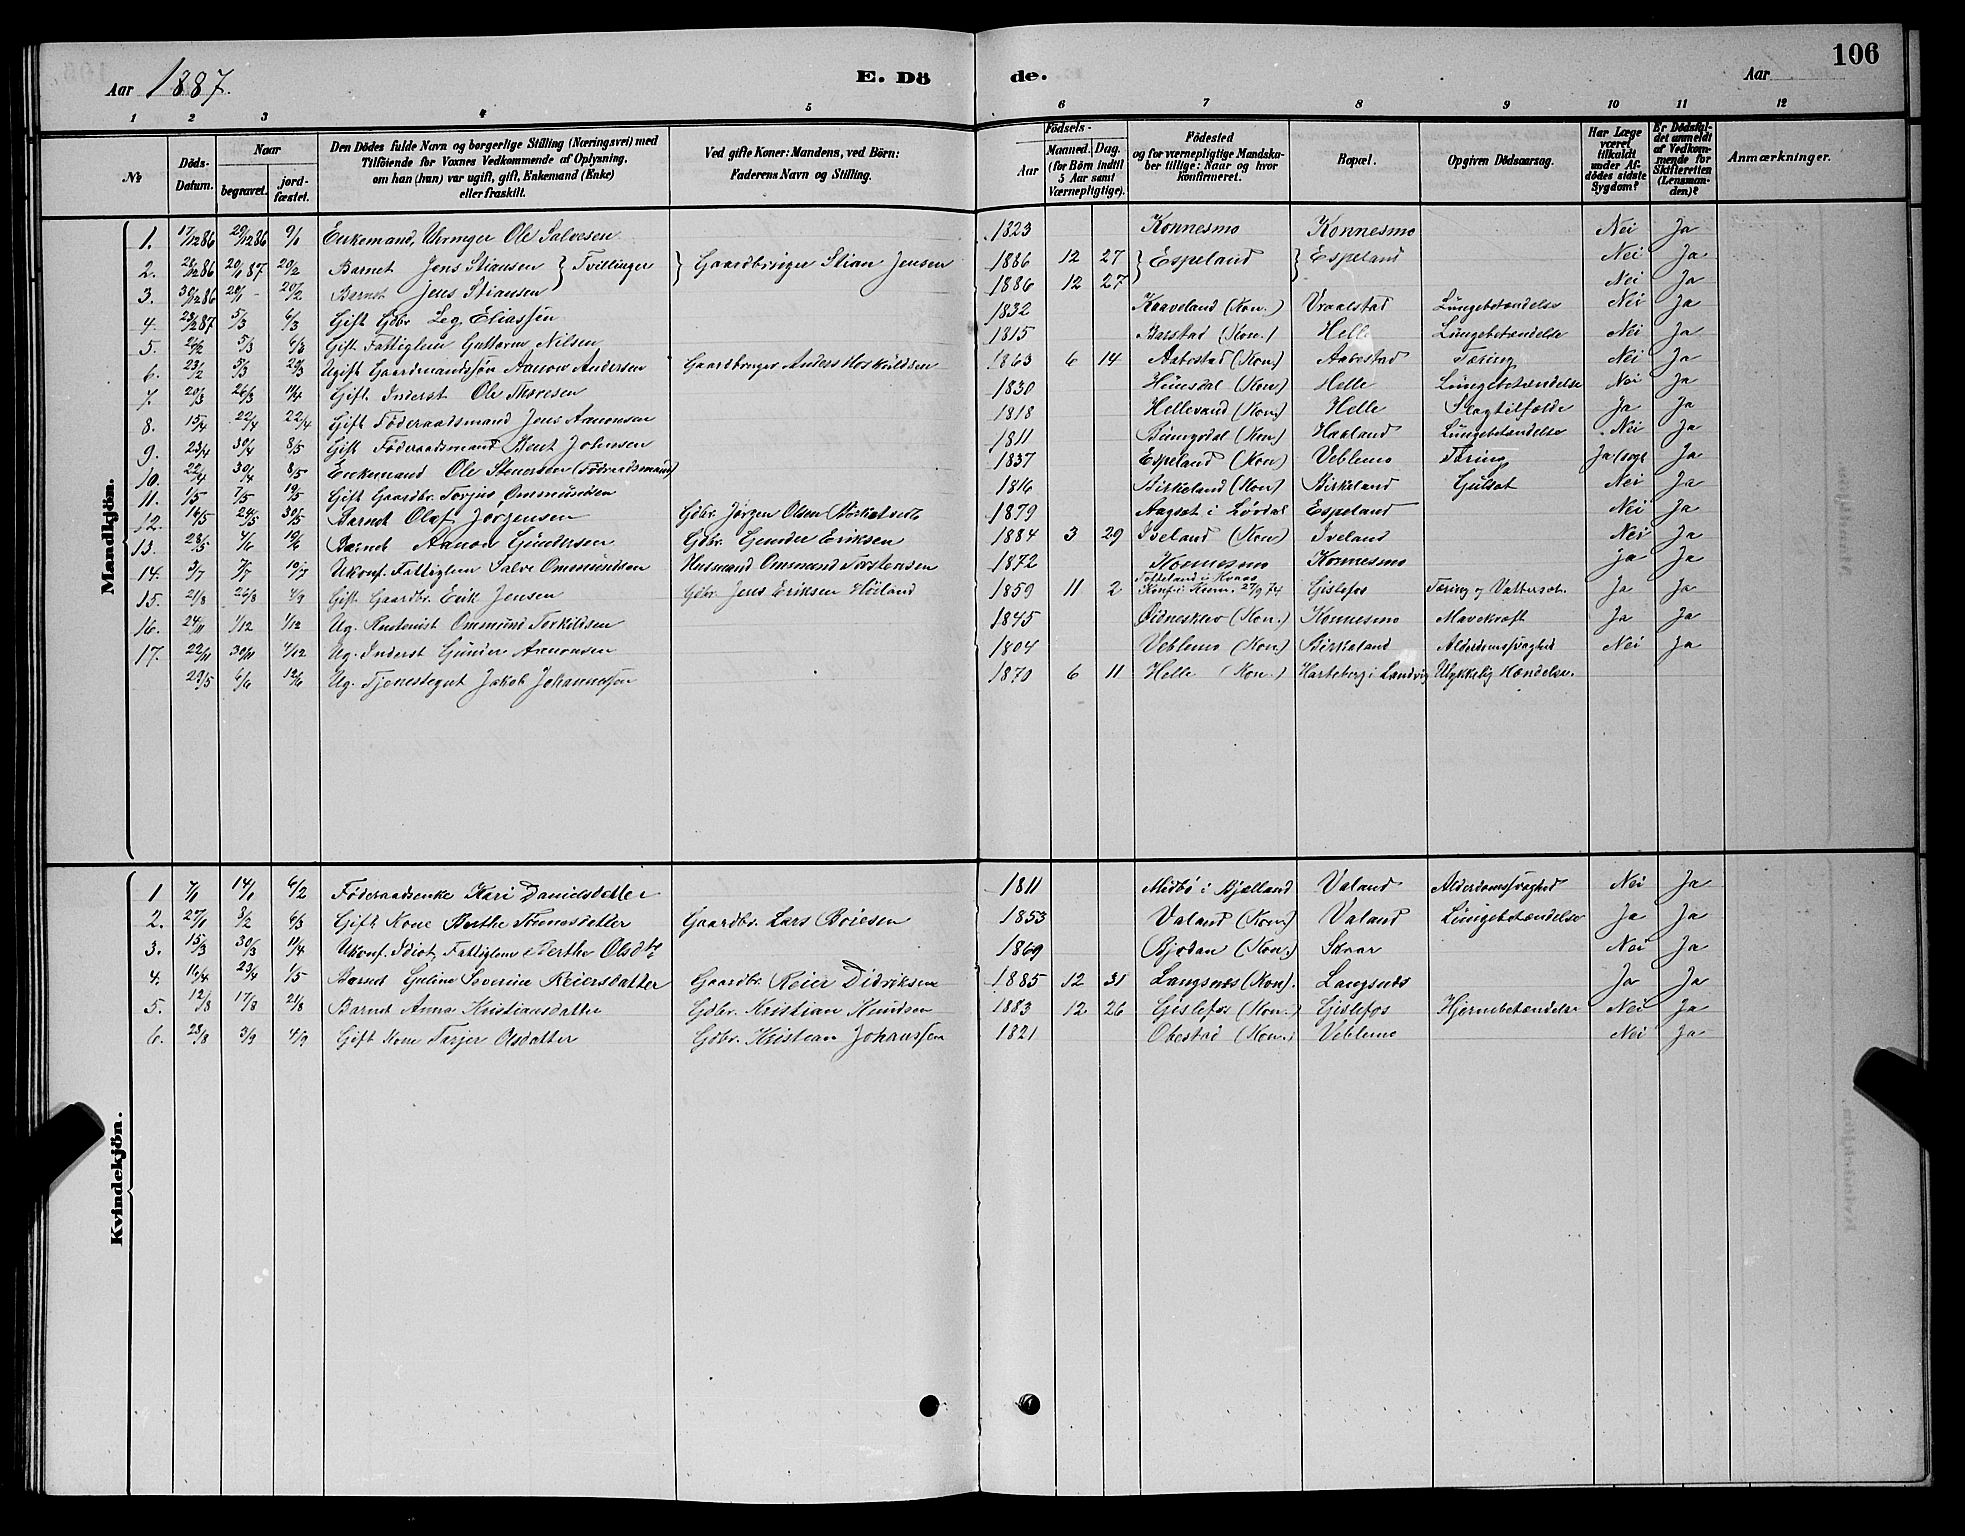 Aar 1887.
E. Dö
de.
Aar
106
1 2 3 4 5 6 7 8 9 10 11 12
No
Döds-Datum.
Naar
begravet.
jord-fæstet.
Den Dödes fulde Navn og borgerlige Stilling (Næringsvei) med
Tilföiende for Voxnes Vedkommende af Oplysning,
om han (hun) var ugift, gift, Enkemand (Enke)
eller fraskilt.
Ved gifte Koner: Mandens, ved Börn:
Faderens Navn og Stilling.
Födsels-
Aar
Maaned. Dag.
(for Börn indtil
5 Aar samt
Værnepligtige).
Födested
og for værnepligtige Mandska-
ber tillige: Naar og hvor
konfirmeret.
Bopæl.
Opgiven Dödsaarsag.
Har Læge
været
tilkaldt
under Af-
dödes sidste
Sygdom?
Er Dödsfal-
det anmeldt
af Vedkom-
mende for
Skifteretten
(Lensman-
den)?
Anmærkninger.
Mandkjön.
1. 17/12 86 29/12 86 9/1 Enkemand, Ole Salvesen 1823 Konnesmo Konnesmo Nei Ja
2. 28/12 86 20/1 87 20/2 Barnet Jens Stiansen } Tvillinger } Gaardbruger Stian Jensen 1886 12 27 } Espeland } Espeland Nei Ja
3. 30/12 86 20/1 - 20/2 Barnet Jens Stiansen 1886 12 27 Nei Ja
4. 23/2 87 5/3 6/3 Gift Gdbr. Leg. Eliassen 1832 Kaaveland (Kon.) Vraalstad Lungebetændelse Nei Ja
5. 26/2 5/3 6/3 Gift Fattiglem Guttorm Nilsen 1815 Barstad (Kon.) Helle Lungebetændelse Nei Ja
6. 23/2 5/3 27/3 Ugift Gaardmandssøn Aanon Andersen Gaardbruger Anders Hoskuldsen 1863 6 14 Aabestad (Kon.) Aabestad Tæring Nei Ja
7. 20/3 26/3 11/4 Gift Inderst Ole Thoresen 1830 Hunsdal (Kon) Helle Lungebetændelse Nei Ja
8. 15/4 22/4 22/4 Gift Føderaadsmand Jens Aanonsen 1818 Hellevand (Kon.) Helle Slagtilfælde Ja Ja
9. 23/4 30/4 8/5 Gift Føderaadsmand Bent Johnsen 1811 (Kon) Haaland Lungebetændelse Nei Ja
10. 22/4 30/4 8/5 Enkemand Ole Stenersen (Føderaadsmand) 1837 Espeland (Kon) Veblemo Tæring Ja Ja
11. 1/5 7/5 19/5 Gift Gaardbr. Torjus Ommundsen 1816 Birkeland (Kon) Birkeland Gulsot Nei Ja
12. 16/5 24/5 30/5 Barnet Olaf Jørgensen Gdbr. Jørgen Olsen 1879 Aagset i Espeland Nei Ja
13. 28/5 4/6 19/6 Barnet Aanon Gundersen Gdbr. Gunder Eriksen 1884 3 29 Iveland (Kon) Iveland Nei Ja
14. 3/7 7/7 10/7 Ukonf. Fattiglem Salve Ommundsen Husmand Ommund Torstensen 1872 Konnesmo Konnesmo Ja Ja
15. 21/8 26/8 4/9 Gift Gaardbr. Erik Jensen Gdbr. Jens Eriksen Høiland 1859 11 2 Konf. i 27/9 74 Gislefos Tæring og Vattersot. Ja Ja
16. 24/11 1/12 1/12 Ug. Ommund Torkildsen 1845 Øidneskev (Kon.) Konnesmo Mavekræft Ja Ja
17. 22/11 30/11 4/12 Ug. Inderst Gunder Aanonsen 1804 Veblemo (Kon) Birkeland Alderdomssvaghed Nei Ja
29/5 6/6 12/6 Ug. Tjenestegut Jakob Johannessen 1870 6 11 Helle (Kon.) i Landvig Ulykkelig Hændelse.
Kvindekjön.
1 7/1 14/1 6/2 Føderaadsenke Kari Danielsdatter 1811 Midbø i Bjelland Valand Alderdomssvaghed Nei Ja
2. 27/1 8/2 6/3 Gift Kone Berthe Tønnesdatter Gaardbr. Lars Boiesen 1853 Valand (Kon.) Valand Lungebetændelse Ja Ja
3. 15/3 30/3 11/4 Ukonf. Idiot, Fattiglem Berthe Olsdtr 1869 (Kon.) Skaar Nei Ja
4. 16/4 23/4 1/5 Barnet Severine Reiersdatter Gaardbr. Reier Didriksen 1885 12 31 Langsnæs (Kon). Langsnæs Ja Ja
5. 12/8 17/8 21/8 Barnet Anna Kristiansdatter Gdbr. Kristian Knudsen 1883 12 26 Gislefos (Kon.) Gislefos Hjernebetændelse Nei Ja
6. 28/8 3/9 4/9 Gift Kone Tarjer Olsdatter Gdbr. Kristian Johanssen 1821 Obestad (Kon.) Veblemo Nei Ja